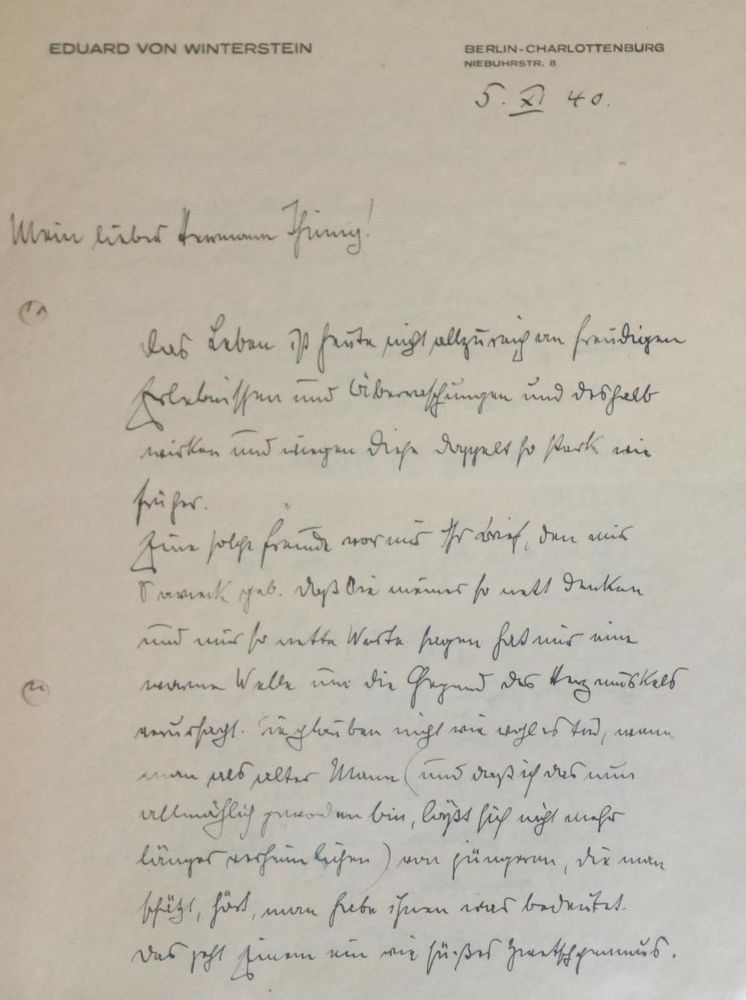 EDUARD VON WINTERSTEIN
BERLIN-CHARLOTTENBURG
NIEBUHRSTR. 8
5. XI 40.
Mein lieber Hermann Thimig!
Das Leben ist heute nicht allzureich an freudigen
Erlebnissen und Überraschungen und deshalb
wirken und wiegen diese doppelt so stark wie
früher.
Eine solche Freude war mir Ihr Brief, den mir
gab. Daß Sie meiner so nett denken
und mir so nette Worte sagen hat mir eine
warme Welle um die Gegend des Herzmuskels
verursacht. Sie glauben nicht wie wohl es tut, wenn
man als alter Mann (und daß ich das nun
allmählich geworden bin, läßt sich nicht mehr
länger verheimlichen) von jüngeren, die man
schätzt, hört, man habe ihnen was bedeutet.
Das geht Einem ein wie süßes